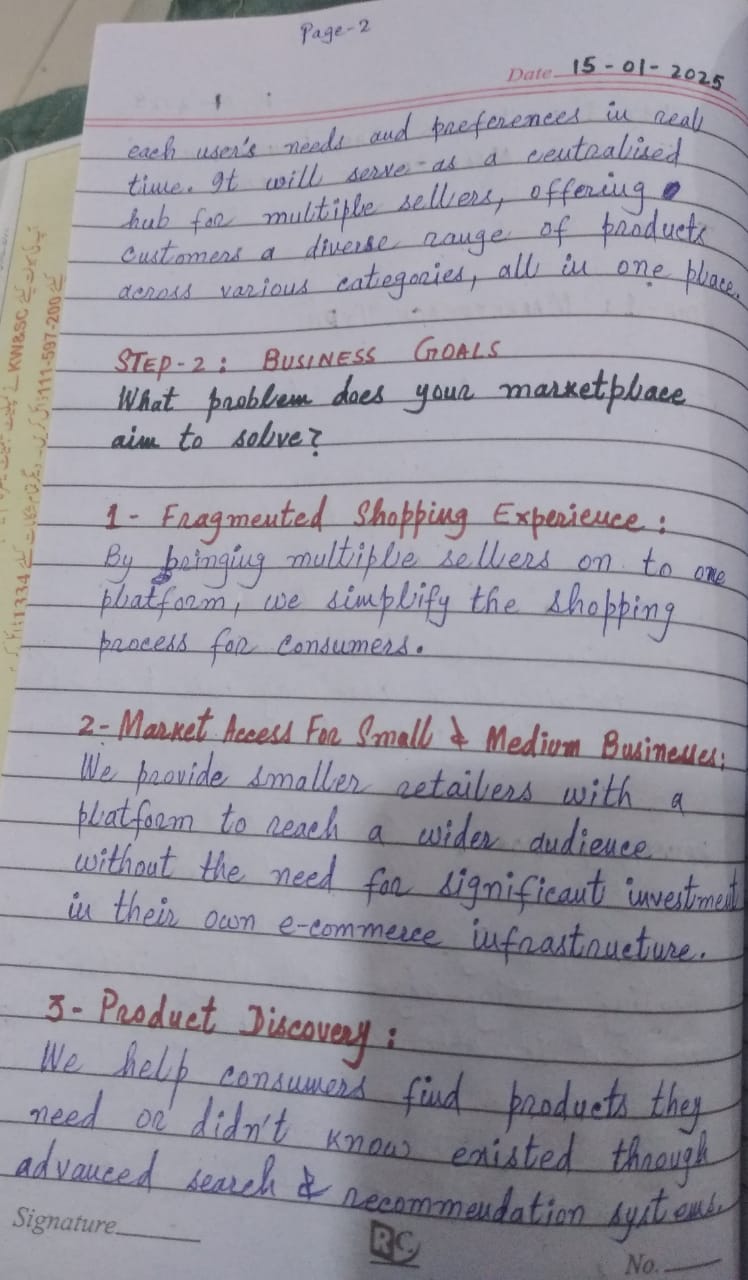 Page-2
Date 15-01-2025
each user's needs and preferences in real
time. It will serve as a centralised
hub for multiple sellers, offering
customers a diverse range of products
across various categories, all in one place.
STEP-2: BUSINESS GOALS
What problem does your marketplace
aim to solve?
1- Fragmented Shopping Experience:
By bringing multiple sellers on to one
platform, we simplify the shopping
process for consumers.
2- Market Access For Small & Medium Businesses:
We provide smaller retailers with a
platform to reach a wider audience
without the need for significant investment
in their own e-commerce infrastructure.
3- Product Discovery:
We help consumers find products they
need or didn't know existed through
advanced search & recommendation systems.
Signature
RC
No.
KW&SC
111-597-200
1334